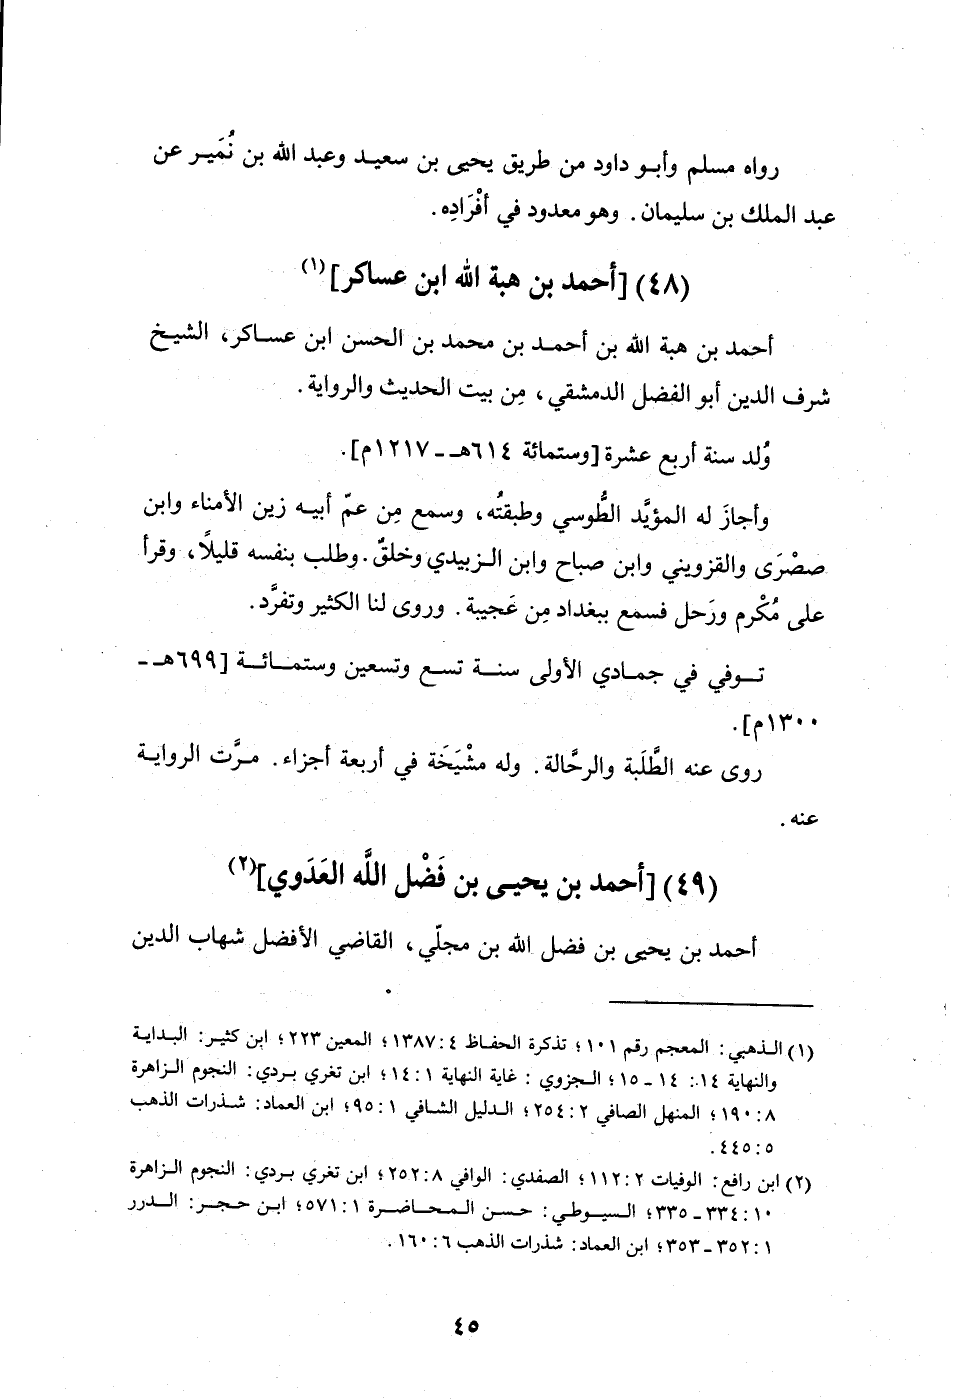 رواه مسلم وأبو داود من طريق يحيى بن سعيد وعبد الله بن نُمَير عن
عبد الملك بن سليمان. وهو معدود في أفْرَادِه.
(٤٨) [أحمد بن هبة الله ابن عساكر](١)
أحمد بن هبة الله بن أحمد بن محمد بن الحسن ابن عساكر، الشيخ
شرف الدين أبو الفضل الدمشقي، مِن بيت الحديث والرواية.
وُلد سنة أربع عشرة [وستمائة ٦١٤هـ - ١٢١٧م].
وأجازَ له المؤيَّد الطُّوسي وطبقتُه، وسمع مِن عمّ أبيه زين الأمناء وابن
صصْرَى والقزويني وابن صباح وابن الزبيدي وخلقٌ. وطلب بنفسه قليلًا، وقرأ
على مُكْرم ورَحل فسمع ببغداد مِن عَجيبة. وروى لنا الكثير وتفرَّد.
توفي في جمادي الأولى سنة تسع وتسعين وستمائة [٦٩٩هـ -
١٣٠٠م].
روى عنه الطَّلَبة والرحَّالة. وله مشْيَخَة في أربعة أجزاء. مرَّت الرواية
عنه.
(٤٩) [أحمد بن يحيى بن فَضْل اللَّه العَدَوي](٢)
أحمد بن يحيى بن فضل الله بن مجلّي، القاضي الأفضل شهاب الدين
(١) الذهبي: المعجم رقم ١٠١؛ تذكرة الحفاظ ٤: ١٣٨٧؛ المعين ٢٢٣؛ ابن كثير: البداية
والنهاية ١٤: ١٤ - ١٥؛ الجزوي: غاية النهاية ١: ١٤؛ ابن تغري بردي: النجوم الزاهرة
٨: ١٩٠؛ المنهل الصافي ٢: ٢٥٤؛ الدليل الشافي ١: ٩٥؛ ابن العماد: شذرات الذهب
٥: ٤٤٥.
(٢) ابن رافع: الوفيات ٢: ١١٢؛ الصفدي: الوافي ٨: ٢٥٢؛ ابن تغري بردي: النجوم الزاهرة
١٠: ٣٣٤ - ٣٣٥؛ السيوطي: حسن المحاضرة ١: ٥٧١؛ ابن حجر: الدرر
١: ٣٥٢ - ٣٥٣؛ ابن العماد: شذرات الذهب ٦: ١٦٠.
٤٥